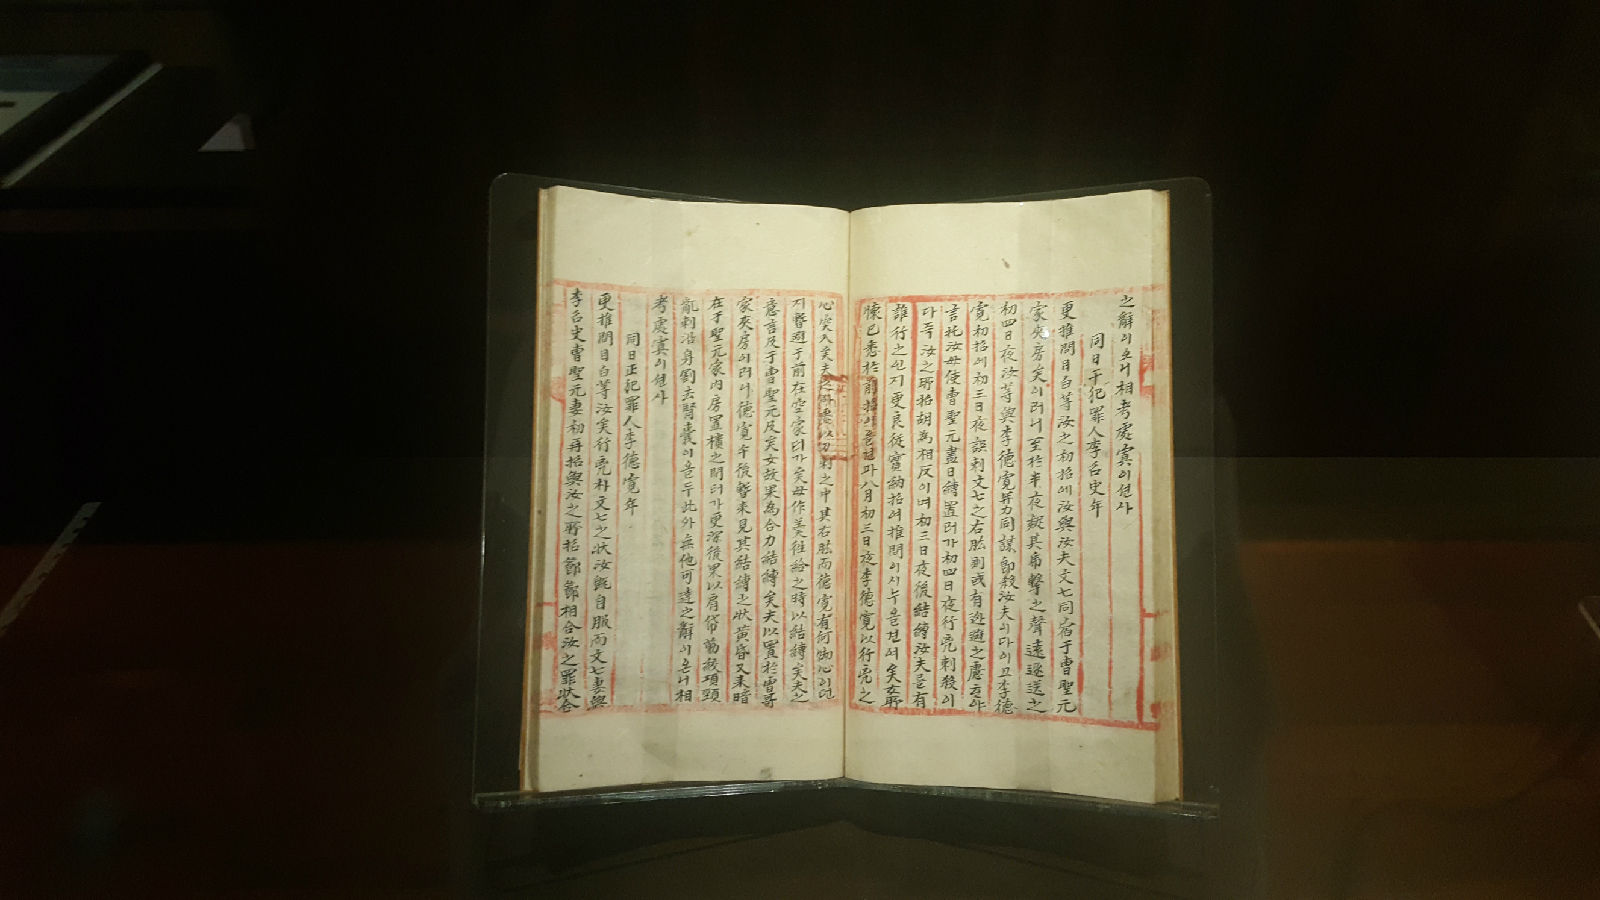 之辭이오니相考處寘이텬사
同日干犯罪人李召史年
更推問目白等汝之初招에汝與汝夫文七同宿于曹聖元
家夾房矣이러니至於半夜疑其뭄擊之聲遠遠送之
初四日夜汝等與李德寬幷力同謀卽殺汝夫이다이고李德
寬初招에初三日夜誤刺文七之右肱則或有逃避之慮
言托汝母使曹聖元盡日縛置러가初四日夜行兇刺殺이
다즉汝之所招胡為相反이며初三日夜後結縛汝夫를有
誰行之인지更良從實納招여推問이시누온견여矣女所
懷已悉於前招이온견과八月初三日夜李德寬以行兇之
心突入矣夫以刀刺之中其右肱而德寬有何物心이던
지暫避于前在空家터가矣母作羹往給之時以結縛矣夫之
意言及于曹聖元及矣女故果為合力結縛矣夫以置於曹哥
家夾房이러니德寬午後暫來見其結縛之狀黃昏又來暗
在于聖元家內房置樻之間터가更深後果以肩帒勒絞項頸
亂刺沿身割去腎囊이온두此外無他可達之辭이온니相
考處寘이텬사
同日正犯罪人李德寬年
更推問目白等汝矣行兇朴文七之狀汝旣自服而文七妻與
李召史曹聖元妻初再招與汝之所招節節相合汝之罪狀合